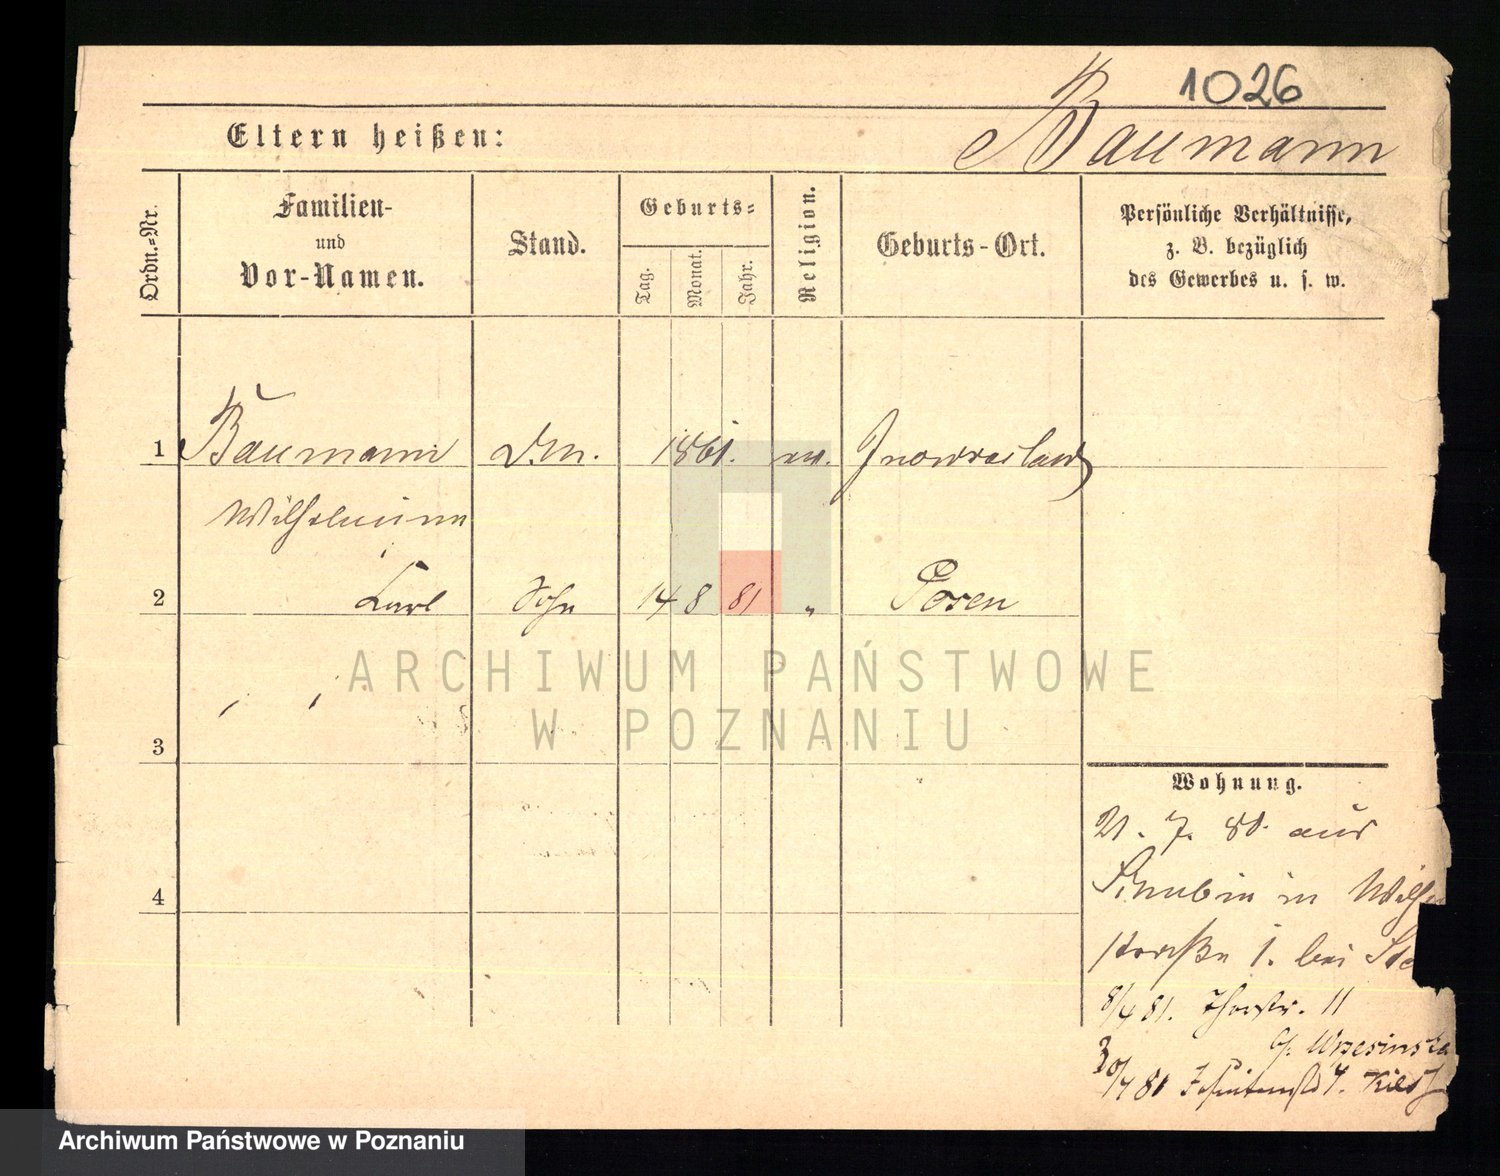 1026
Eltern heißen:
Baumann
Ordn.=Nr.
Familien-
und
Vor-Namen.
Stand.
Geburts=
Tag.
Monat.
Jahr.
Religion.
Geburts-Ort.
Persönliche Verhältnisse,
z. B. bezüglich
des Gewerbes u. s. w.
1 Baumann 1861. Inowraclaw
Wilhelmine
2 Carl Sohn 14 8 81 " Posen
ARCHIWUM PAŃSTWOWE
W POZNANIU
3
4
Wohnung.
21. 7. 80. aus
in Wilh
straße 1. bei
8/4 81. Thorstr. 11
b/. Wrzesinska
Archiwum Państwowe w Poznaniu